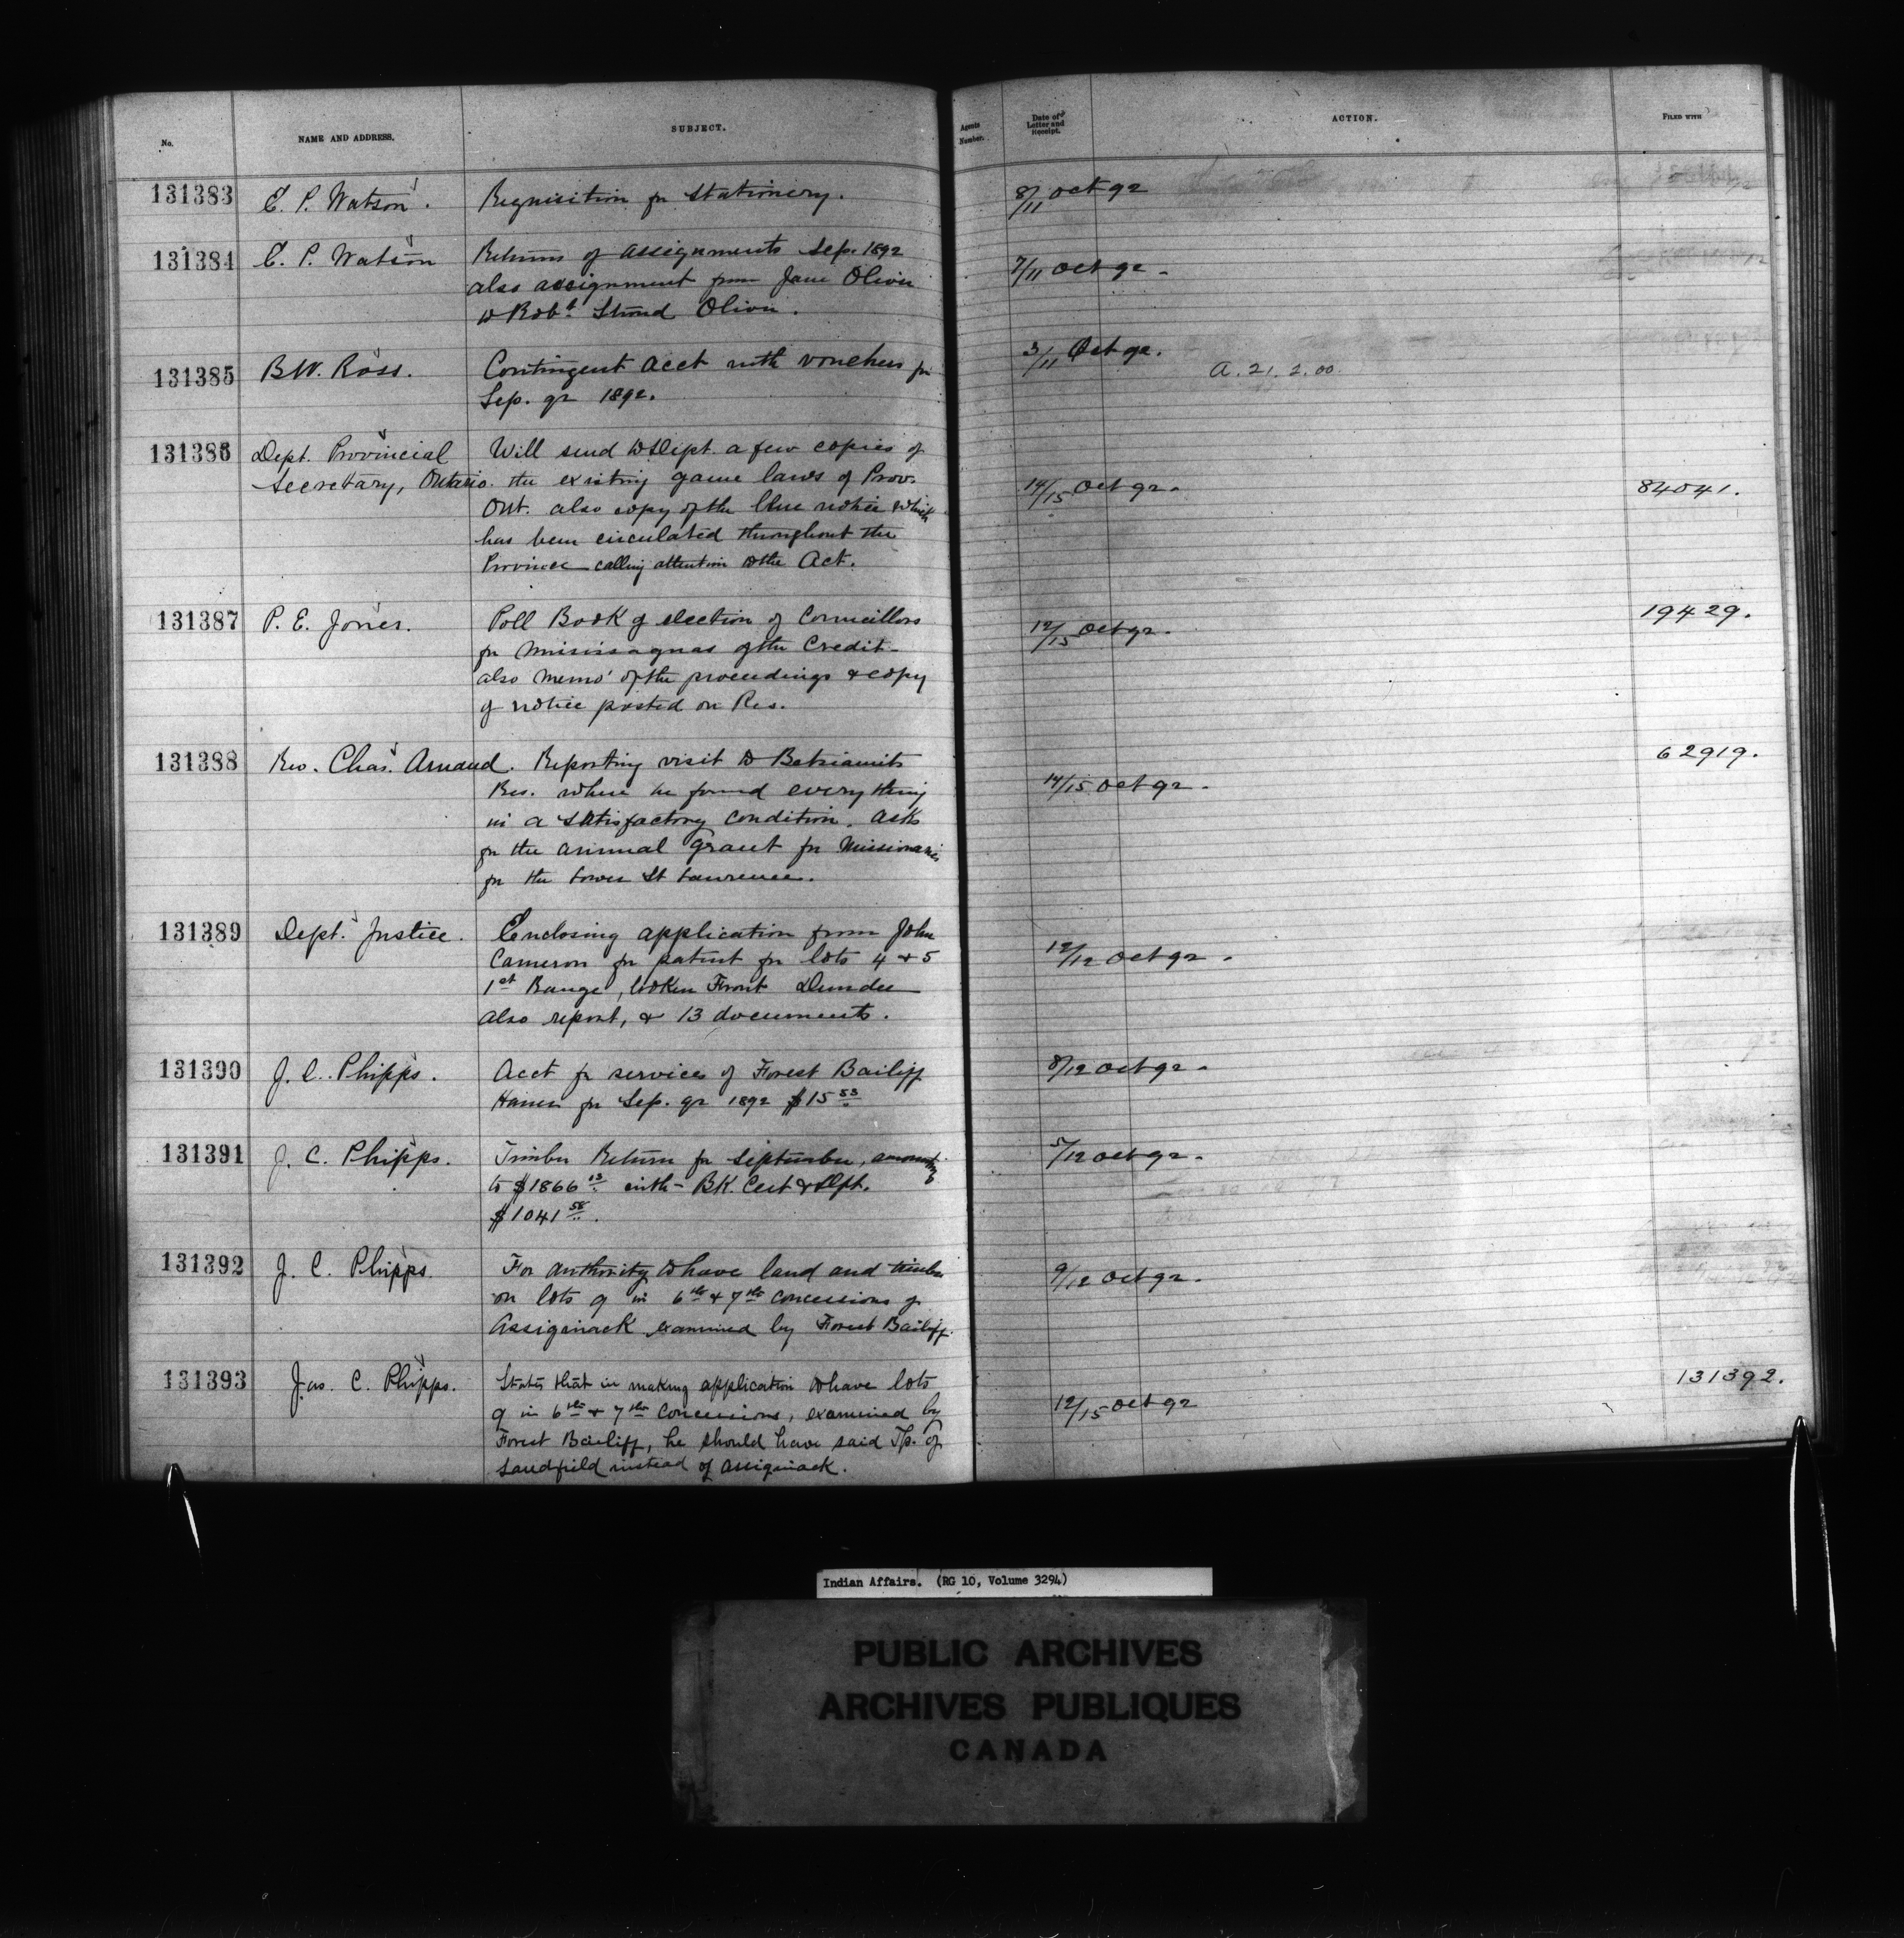 No.
NAME AND ADDRESS.
SUBJECT.
Agents Number.
Date of Letter and Receipt.
ACTION.
FILED WITH
131383 E. P. Watson. Requisition for stationery. 8/11 Oct 92
131384 E. P. Watson Returns of assignments Sep. 1892 7/11 Oct 92.
also assignment from Jane Oliver
to Robt. Stroud Oliver.
131385 B.W. Ross. Contingent acct with vouchers for 3/11 Oct 92. A. 21. 2. 00
Sep. qr 1892.
131386 Dept. Provincial Will send to Dept. a few copies of
Secretary, Ontario. the existing game laws of Prov. 14/15 Oct 92. 84041.
Ont. also copy of the blue notice which
has been circulated throughout the
Province calling attention to the Act.
131387 P. E. Jones. Poll Book of election of Councillors 12/15 Oct 92. 19429.
for Mississaguas of the Credit
also memo' of the proceedings & copy
of notice posted on Res.
131388 Rev. Chas. Arnaud. Reporting visit to Betsiamits 14/15 Oct 92. 62919.
Res. where he found everything
in a satisfactory condition. asks
for the annual grant for Missionaries
for the Lower St Lawrence.
131389 Dept. Justice. Enclosing application from John 12/12 Oct 92.
Cameron for patent for lots 4 & 5
1st Range, Broken Front Dundee
also report, & 13 documents.
131390 J. C. Phipps. Acct for services of Forest Bailiff 8/12 Oct 92.
for Sep. qr 1892 $15 53
131391 J. C. Phipps. Timber Return for September, amounting 5/12 Oct 92.
to $1866 13 with BK. Cert & Dft.
$1041 58.
131392 J. C. Phipps. For authority to have land and timber 9/12 Oct 92.
on lots 9 in 6th & 7th concessions of
Assiginack examined by Forest Bailiff.
131393 Jas. C. Phipps. States that in making application to have lots 12/15 Oct 92 131392.
9 in 6th & 7th concessions, examined by
Forest Bailiff, he should have said Tp. of
Sandfield instead of Assiginack.
Indian Affairs. (RG 10, Volume 3294)
PUBLIC ARCHIVES
ARCHIVES PUBLIQUES
CANADA